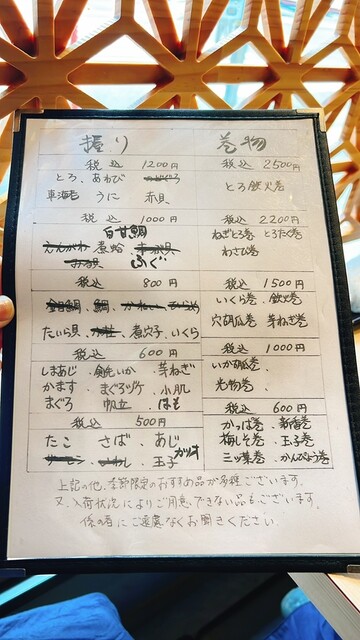 握り
税込 1200円
とろ、あわび
車海老 うに 赤貝
税込 1000円
白甘鯛
えんがわ 煮蛤
ふぐ
税込 800円
鯛
たいら貝 煮穴子 いくら
税込 600円
しまあじ 芽ねぎ
かます、まぐろヅケ、小肌
まぐろ 帆立 はも
税込 500円
たこ さば、あじ
サーモン、いわし、玉子 カツオ
巻物
税込 2500円
とろ鉄火巻
税込 2200円
ねぎとろ巻 とろたく巻
わさび巻
税込 1500円
いくら巻、鉄火巻
穴胡瓜巻 芽ねぎ巻
税込 1000円
いか胡瓜巻
光物巻
税込 600円
かっぱ巻、新香巻
梅しそ巻、玉子巻
三ッ葉巻、かんぴょう巻
上記の他、季節限定のおすすめ品が多種ございます。
又、入荷状況によりご用意できない品もございます。
係の者にご遠慮なくお聞きください。